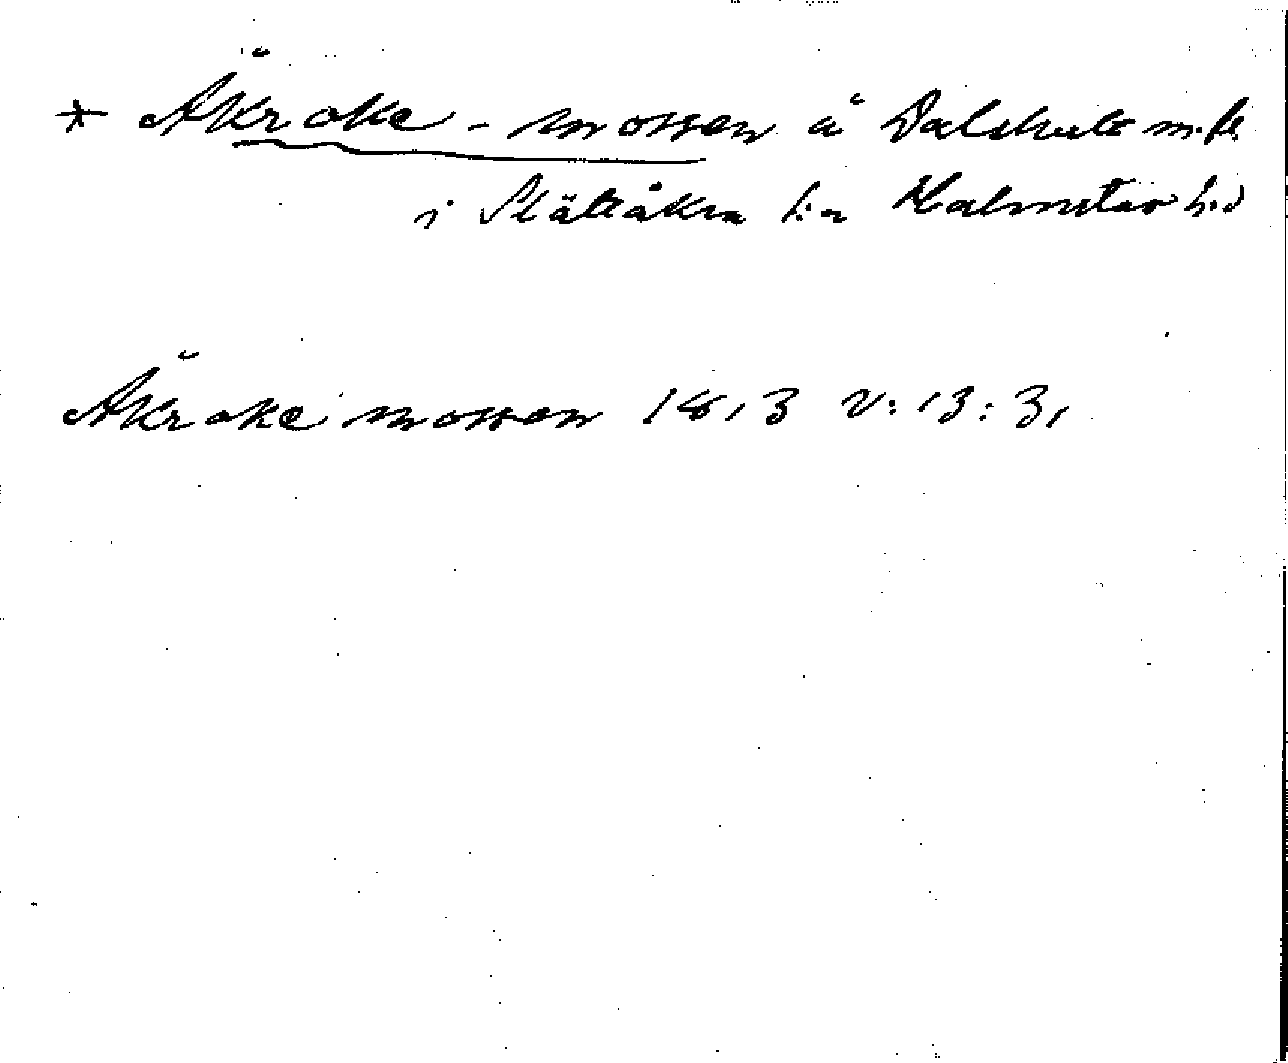 * Åkroke-mossen å Dalshult m.fl.
i Slättåkra s:n Halmstad h:d
Åkroke mossen 1813 V:13:31